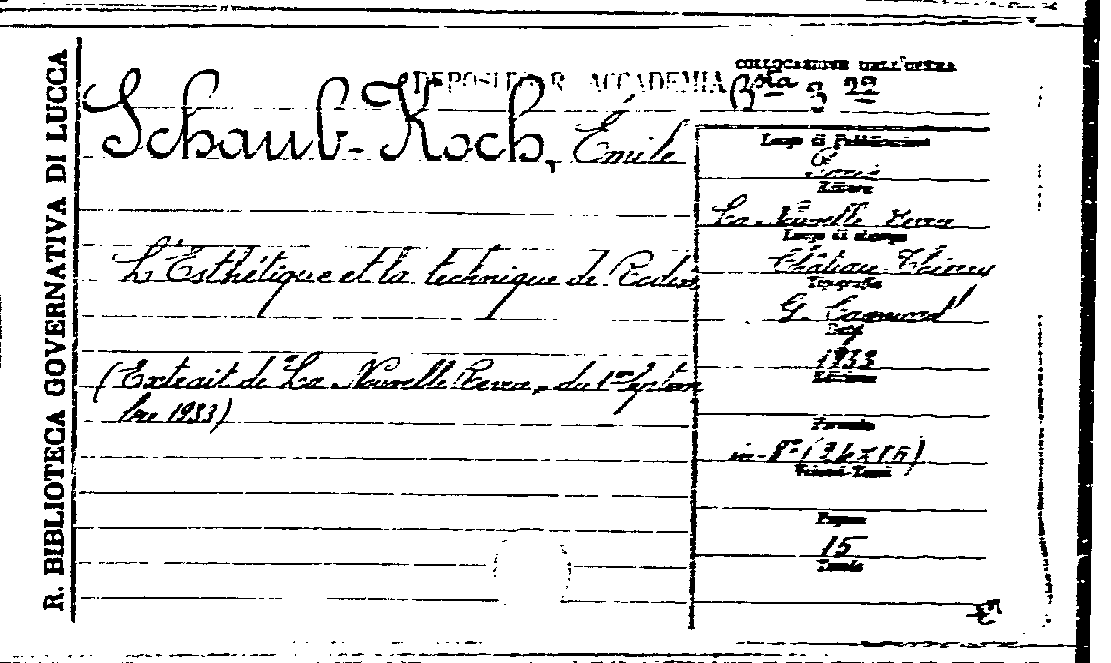 R. BIBLIOTECA GOVERNATIVA DI LUCCA
DEPOSITO R. ACCADEMIA
COLLOCAZIONE DELL'OPERA
Bsta 3 22
Schaub-Koch, Émile
L'Esthétique et la technique de Rodin
(Extrait de "La Nouvelle Revue", du 1er septem
bre 1933)
Luogo di Pubblicazione
Paris
Editore
La Nouvelle Revue
Luogo di stampa
Château Thierry
Tipografia
G.
Data
1933
Edizione
Formato
in-8°
Volumi-Tomi
Pagine
15
Tavole